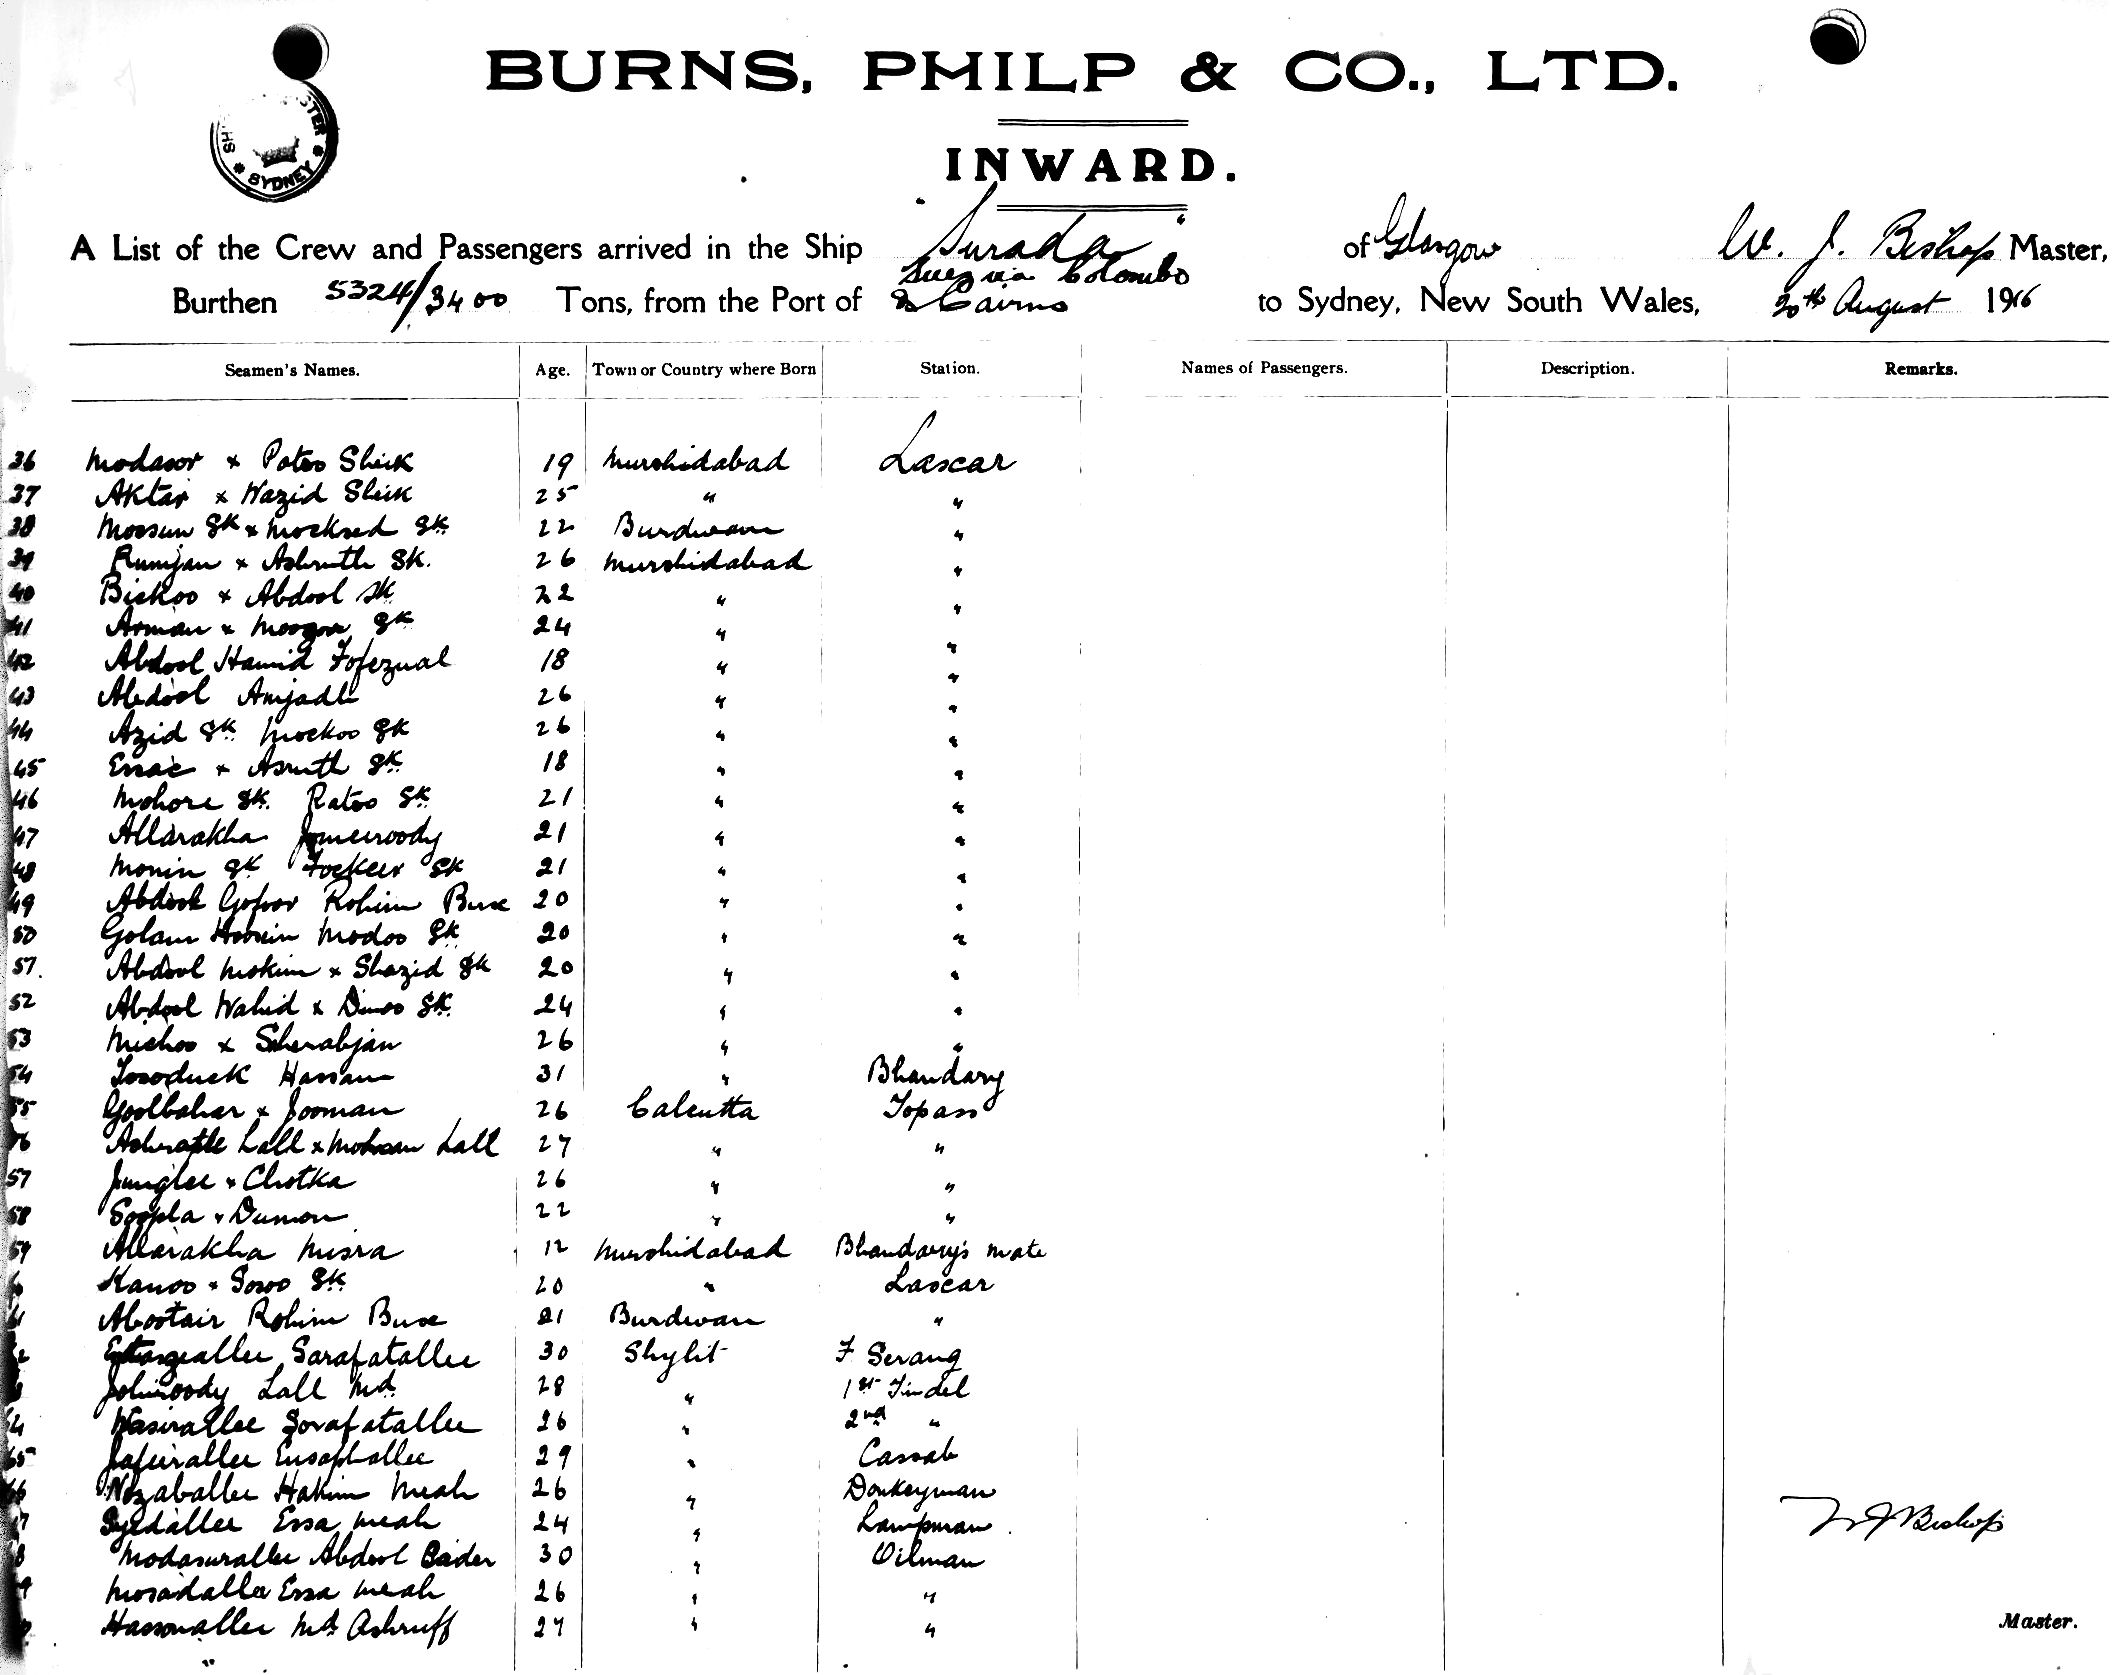 BURNS, PHILP & CO., LTD.
INWARD.
SYDNEY
A List of the Crew and Passengers arrived in the Ship "Surada" of Glasgow W. J. Bishop Master,
Burthen 5324/3400 Tons, from the Port of Suez via Colombo & Cairns to Sydney, New South Wales, 20th August 1916
Seamen's Names. Age. Town or Country where Born Station. Names of Passengers. Description. Remarks.
36 Modasor x Patoo Sheik 19 Murshidabad Lascar
37 Aktar x Wazid Sheik 25 " "
38 Moosun Sk x Mocksed Sk 22 Burdwan "
39 Rumjan x Ashruth Sk. 26 Murshidabad "
40 Bickoo x Abdool Sk 22 " "
41 Arman x Moogoor Sk 24 " "
42 Abdool Hamid Fofezual 18 " "
43 Abdool Amjadh 26 " "
44 Azid Sk Mockoo Sk 26 " "
45 Essac x Asruth Sk 18 " "
46 Mohore Sk. Patoo Sk 21 " "
47 Allarakha Jomeiroody 21 " "
48 Monin Sk Fockeer Sk 21 " "
49 Abdool Gofoor Rohim Buxe 20 " "
50 Golam Hossein Modoo Sk 20 " "
51. Abdool Mokim x Shazid Sk 20 " "
52 Abdool Wahid x Dinoo Sk. 24 " "
53 Michoo x Sherabjan 26 " "
54 Tosoduck Hassam 31 " Bhandary
55 Goolbahar x Jooman 26 Calcutta Topass
56 Lall x Mohan Lall 27 " "
57 Junglee x Chotka 26 " "
58 Soopla x Dumon 22 " "
59 Allarakha Misra 12 Murshidabad Bhandary's mate
Kanoo x Soroo Sk 20 " Lascar
Abootair Rohim Buxe 21 Burdwan "
Sarafatallee 30 Shylit F Serang
Johiroody Lall Md. 28 " 1st Tindel
Wasirallee Sorafatallee 26 " 2nd "
65 Jafeirallee Eusophallee 29 " Cassab
66 Nozaballee Hakim Meah 26 " Donkeyman
Syedallee Essa Meah 24 " Lampman
Modasurallee Abdool Cader 30 " Oilman
Mosadallee Essa Meah 26 " "
Hassonallee Md Ashruff 27 " "
W J Bishop
Master.